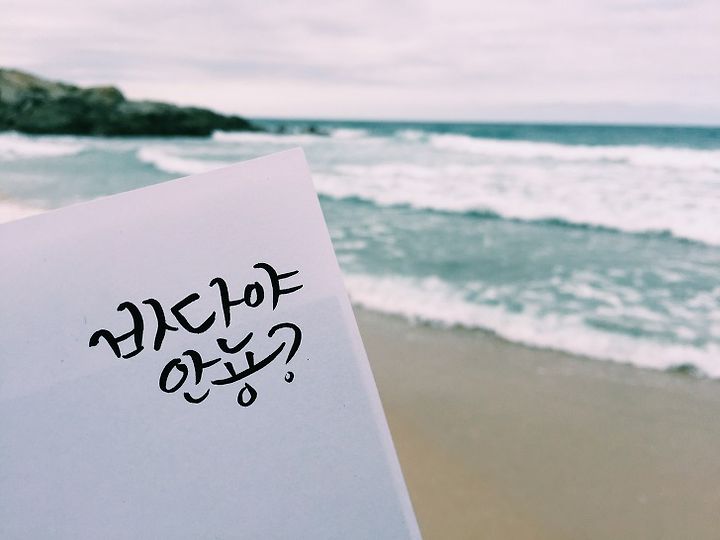 바다야
안뇽?